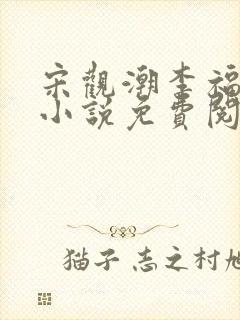 宋觀潮李福
小說免費閱
猫子 志之村旭